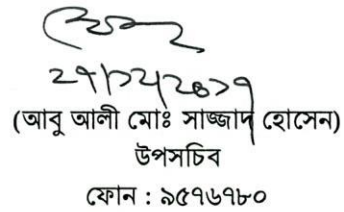 ২৭/১২/২০১৭
(আবু আলী মোঃ সাজ্জাদ হোসেন)
উপসচিব
ফোন : ৯৫৭৬৭৮০